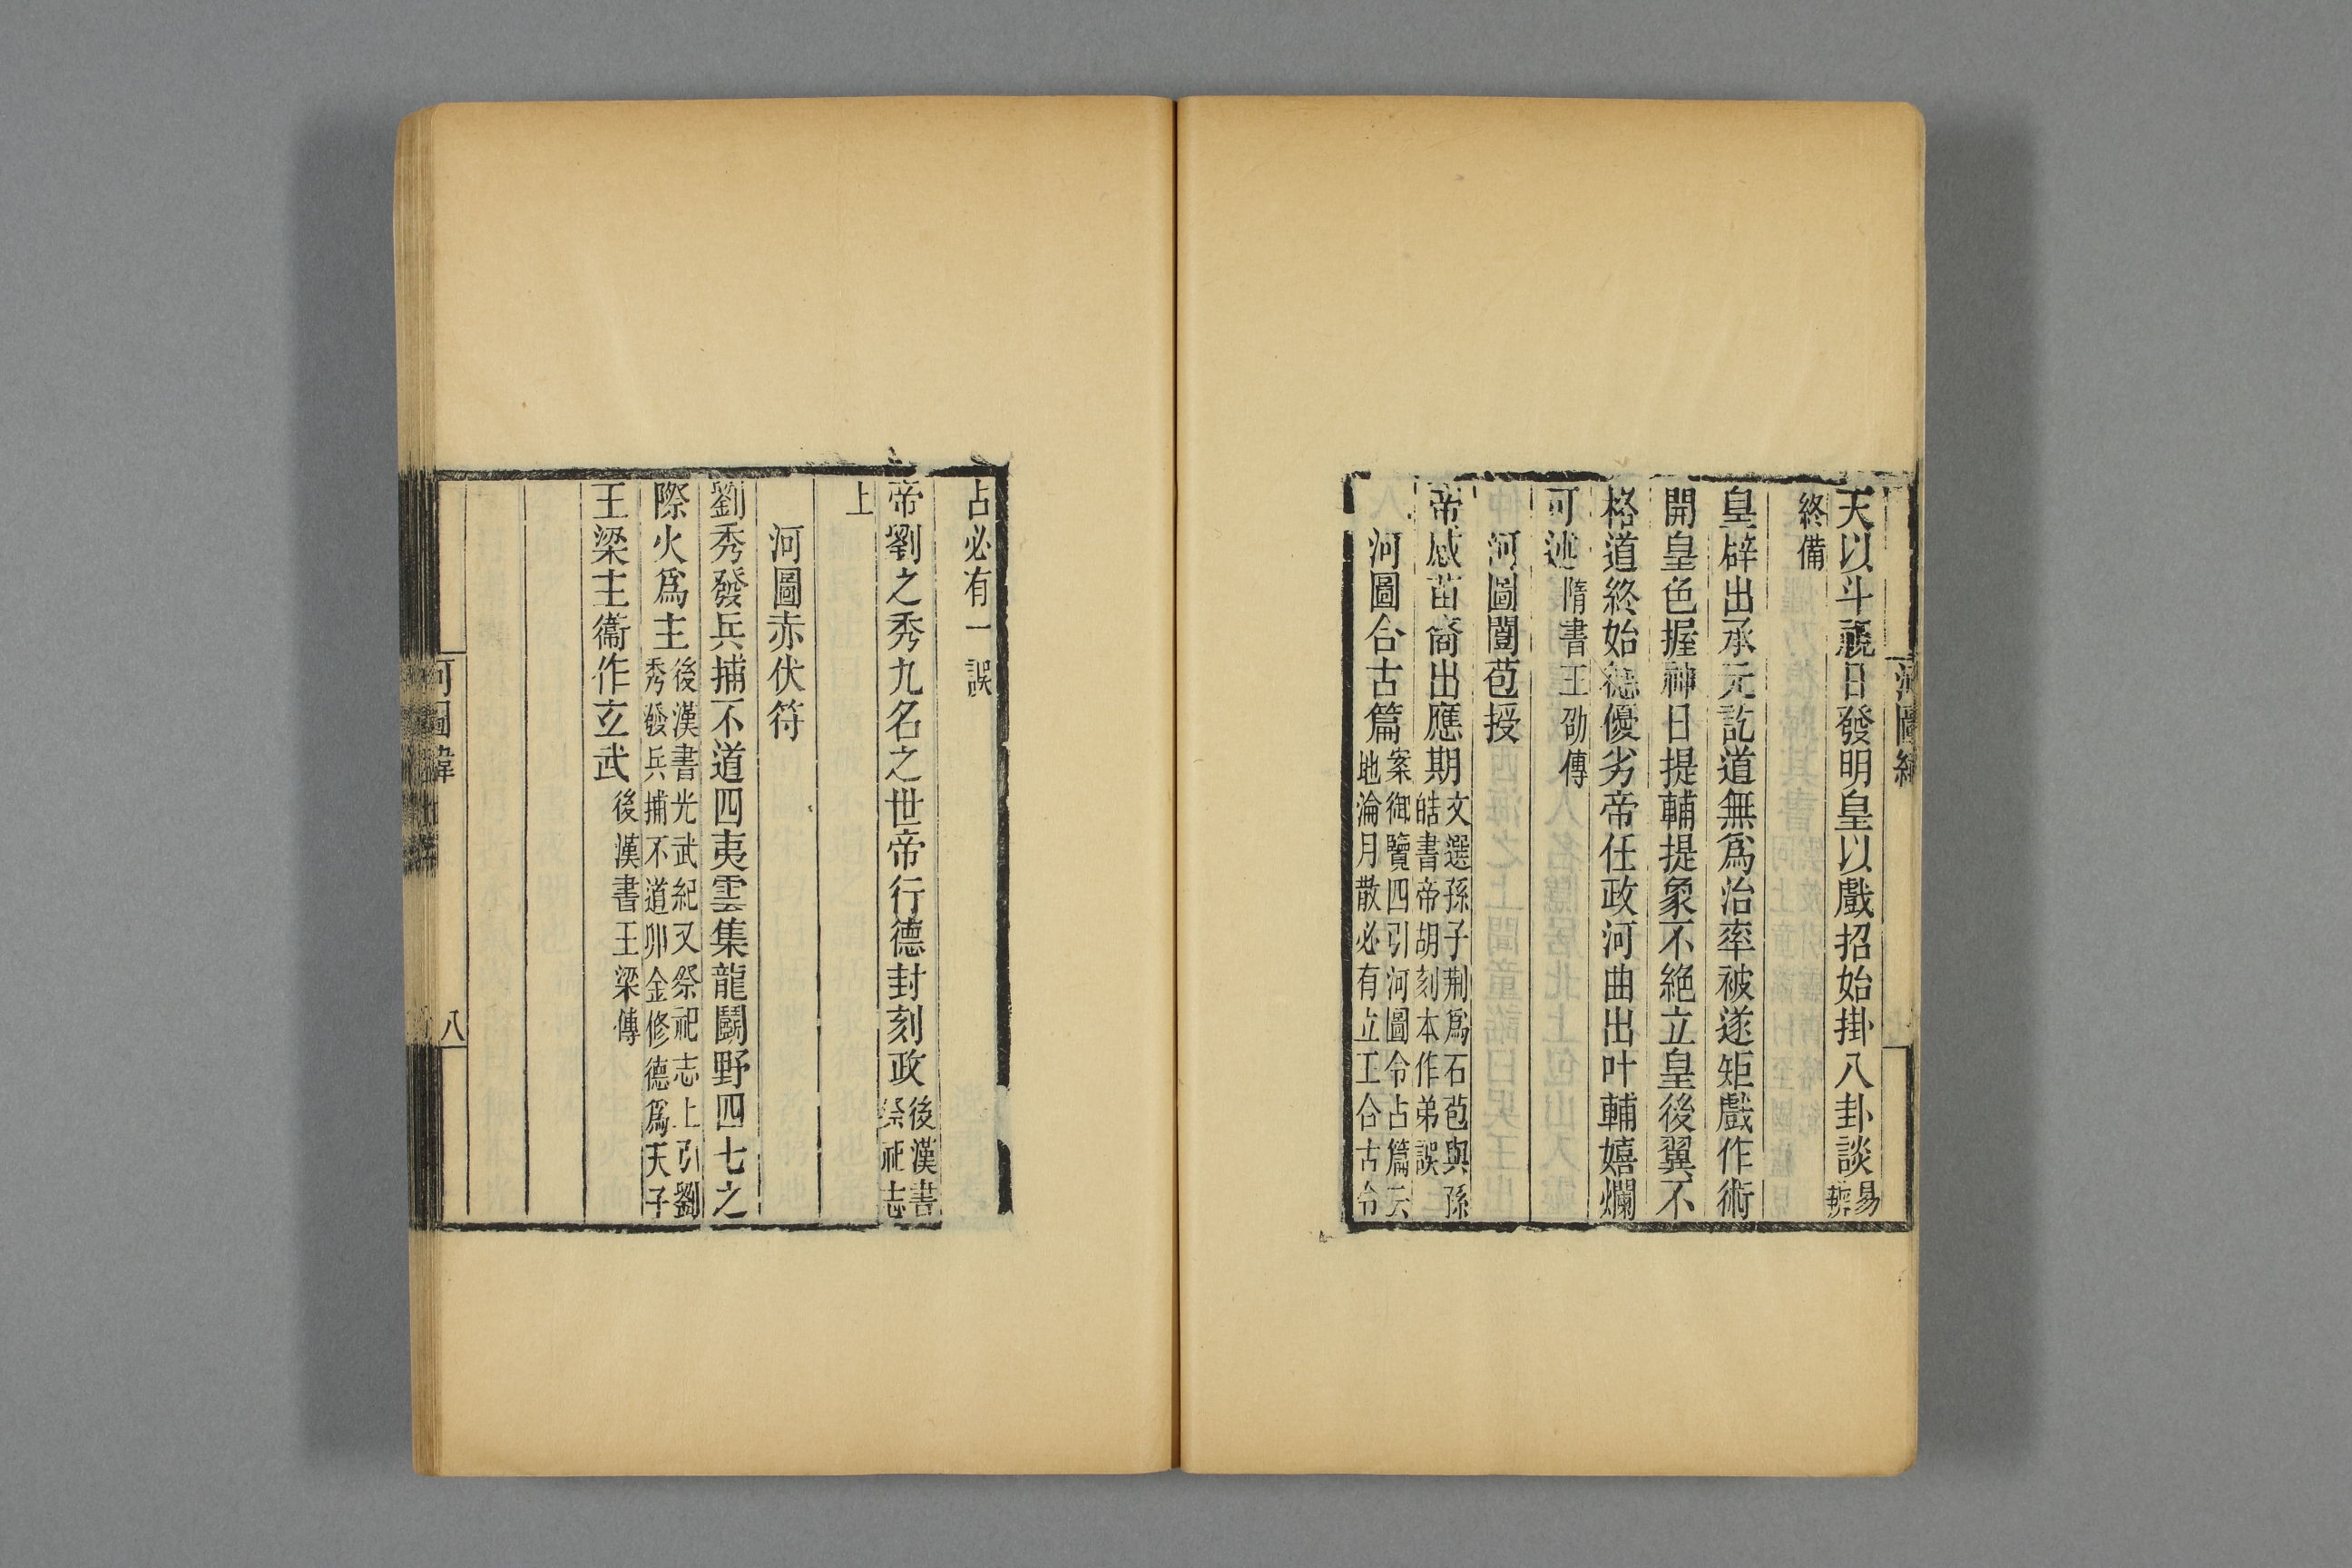 天以斗視日發明皇以戲招始掛八卦談易辨
終備
皇辟出承元訖道無爲治率被遂矩戲作術
開皇色握神日提輔提象不絶立皇後翼不
格道終始德優劣帝任政河曲出叶輔嬉爛
可述隋書王劭傳
河圖闓苞授
帝感苗裔出應期文選孫子荆爲石苞與孫
皓書帝胡刻本作弟誤
河圖合古篇案御覽四引河圖令占篇云
地淪月散必有立工合古令
占必有一誤
帝劉之秀九名之世帝行德封刻政後漢書
祭祀志
上
河圖赤伏符
劉秀發兵捕不道四夷雲集龍鬬野四七之
際火爲主後漢書光武紀又祭祀志上引劉
秀發兵捕不道卯金修德爲天子
王梁主衞作玄武後漢書王梁傳
河圖緯
八